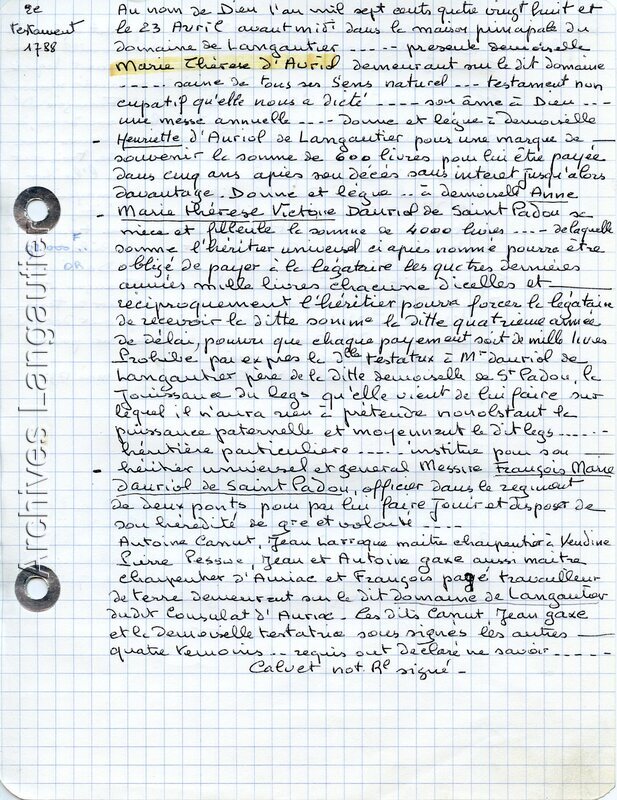 2e
testament
1788
Au nom de Dieu l'an mil sept cents quatre vingt huit et
le 23 Avril avant midi dans la maison principale du
domaine de Langautier ----- presente demoiselle
Marie Thérèse d'Auriol demeurant sur le dit domaine
----- saine de tous ses sens naturel --- testament non
cupatif qu'elle nous a dicté ----- son âme à Dieu ---
une messe annuelle ---- donne et lègue à demoiselle
- Henriette d'Auriol de Langautier pour une marque de
souvenir la somme de 600 livres pour lui être payée
dans cinq ans après son décès sans interet jusqu'alors
davantage. Donne et lègue -- à demoiselle Anne
- Marie Thérèse Victoire Dauriol de Saint Padou sa
nièce et filleule la somme de 4000 livres ---- de laquelle
somme l'héritier universel ci après nommé pourra être
obligé de payer à la légataire les quatres dernières
années mille livres chacune d'icelles et
réciproquement l'héritier pourra forcer la légataire
de recevoir la ditte somme la ditte quatrième année
de délai, pourvu que chaque payement soit de mille livres
Prohibe par exprès la dlle testatrix à Mr dauriol de
Langautier père de la ditte demoiselle de St Padou, la
Jouissance du legs qu'elle vient de lui faire sur
lequel il n'aura rien à prétendre nonobstant la
puissance paternelle et moyennant le dit legs ------
héritière particulière ----- institue pour son
- héritier universel et general Messire François Marie
Dauriol de Saint Padou, officier dans le regiment
de deux ponts pour par lui faire jouir et disposer de
son hérédité de gré et volonté ----
Antoine Canut, Jean Larroque maitre charpentier à Vendine
Pierre Jean et Antoine gaxe aussi maitre
charpentier d'Auriac et François pagé travailleur
de terre demeurant sur le dit domaine de Langautier
du dit Consulat d'Auriac - Les dits Canut, Jean gaxe
et la demoiselle testatrix sous signés les autres
quatre temoins -- requis ont déclaré ne savoir -----
Calvet not Rl signé -
Archives Langautier